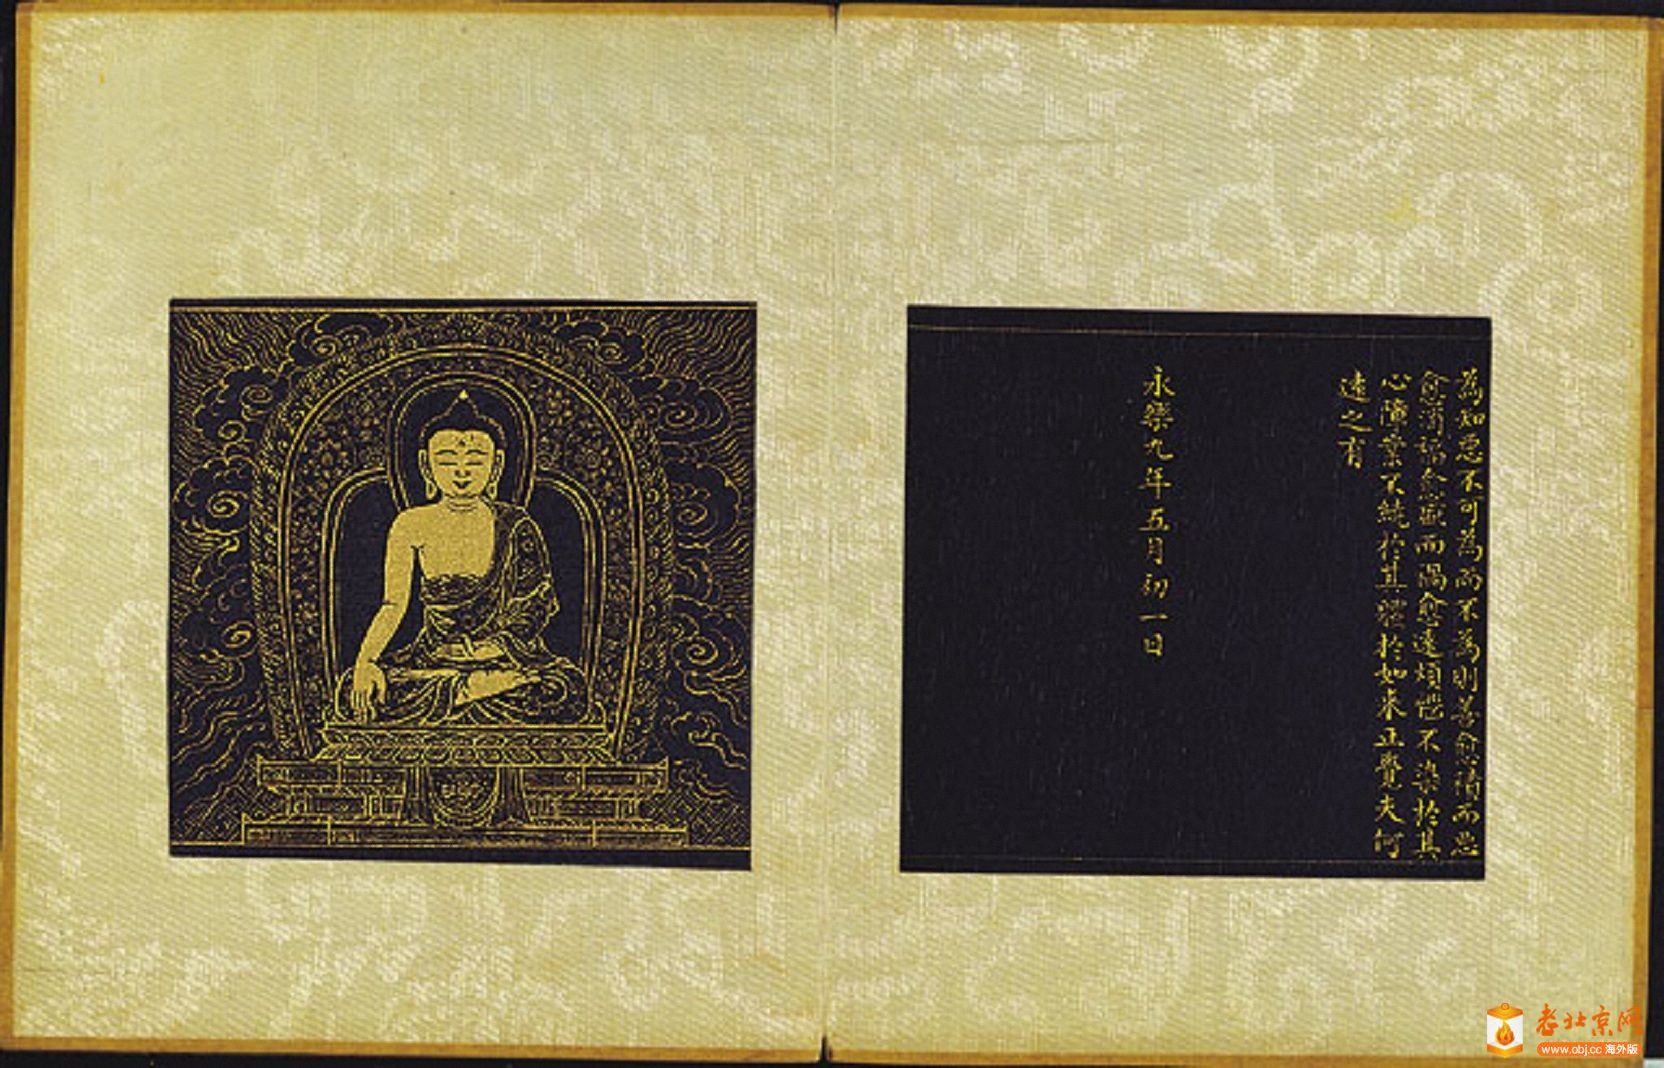 為知惡不可為而不為則善愈積而惡
愈消福愈臻而禍愈遠煩惱不染於其
心障業不繞於其體於如來正覺夫何
遠之有
永樂九年五月初一日
老北京网
www.obj.cc 海外版